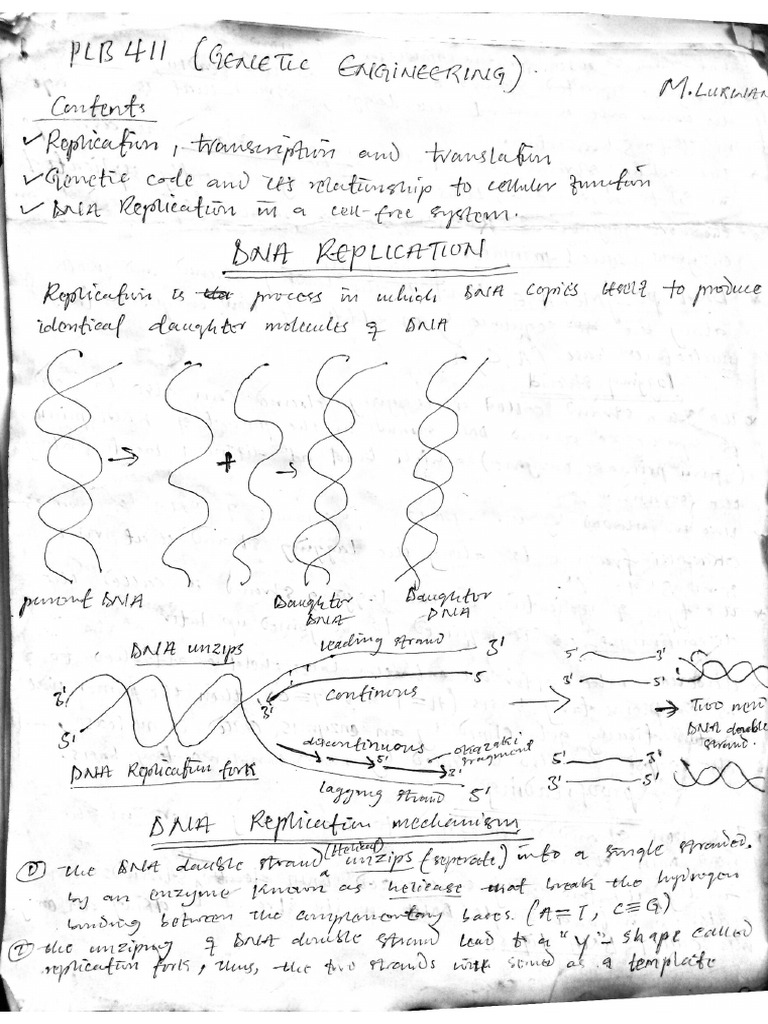 PLB 411 (GENETIC ENGINEERING).
M. LUKMAN
Contents
✓ Replication, transcription and translation
✓ Genetic code and its relationship to cellular function
✓ DNA Replication in a cell-free system.
DNA REPLICATION
Replication is process in which DNA copies itself to produce
identical daughter molecules of DNA
→ + →
parent DNA
Daughter DNA
Daughter DNA
DNA unzips
leading strand 3'
3'
3'
continous 5
5'
discontinuous
okazaki fragment
5'
3'
DNA Replication fork
lagging strand 5'
5' 3'
3' 5'
→ Two new DNA double strand.
5' 3'
3' 5'
DNA Replication mechanism
(Helical)
① The DNA double strand unzips (seperate) into a single stranded.
by an enzyme known as helicase that break the hydrogen
bonding between the complementary bases. (A=T, C≡G)
② The unziping of DNA double strand lead to a "Y"-shape called
replication fork, thus, the two strands will served as a template